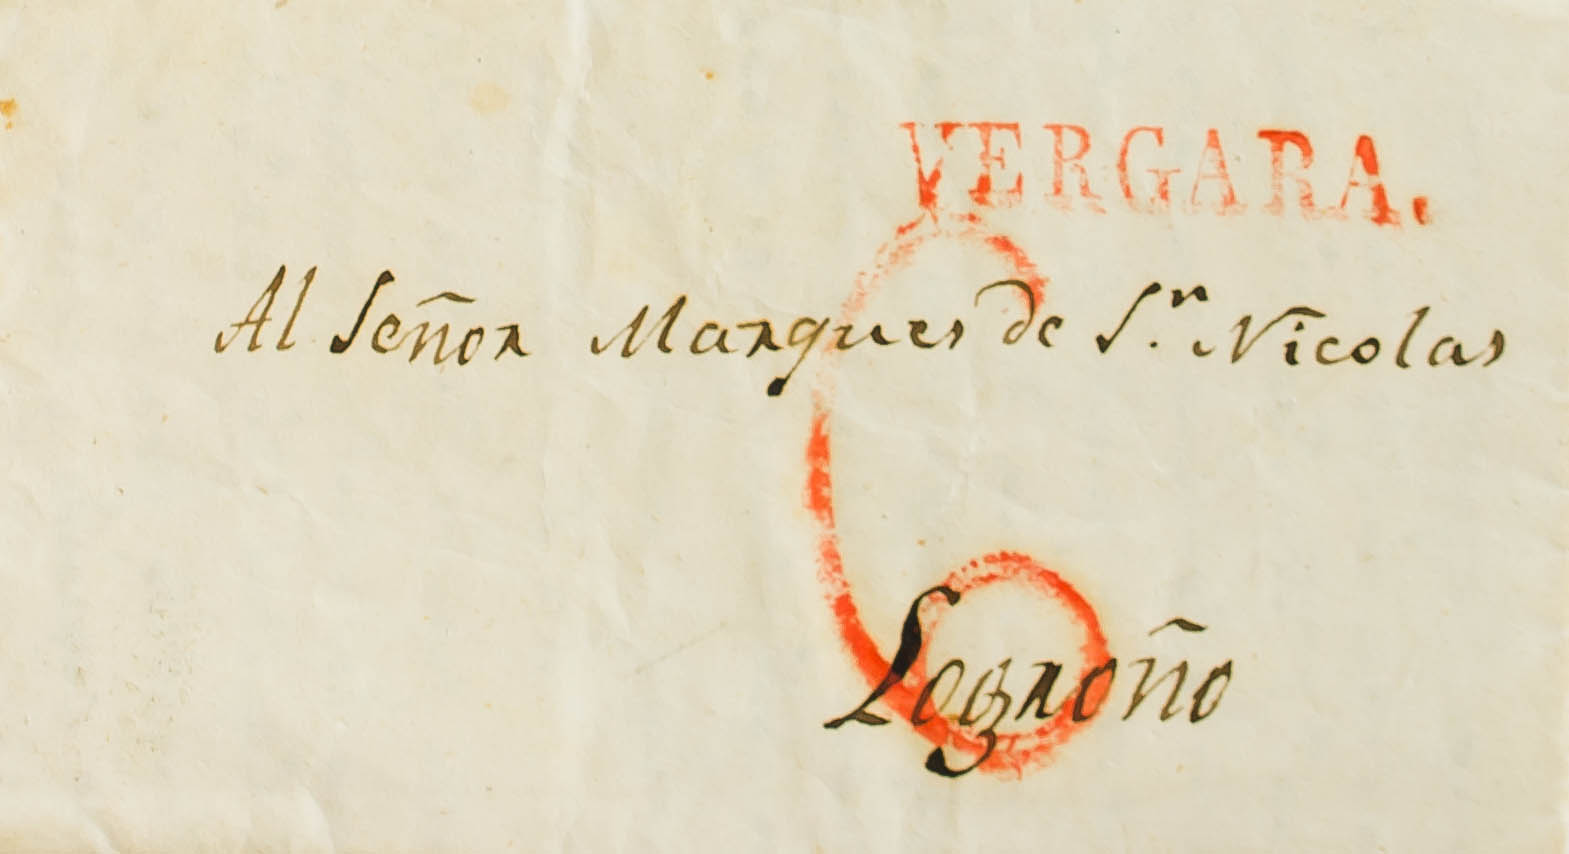 VERGARA.
Al Señor Marques de S.r Nicolas
6
Logroño